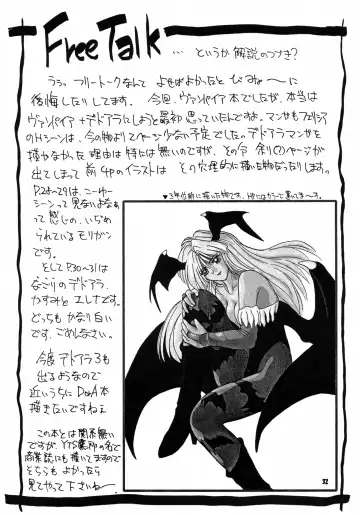 Free Talk
… というか 解説のつづき?
うぅっ フリートークなんて よせばよかったと ひじょ〜に
後悔したいしてます。今回、ヴァンパイア本でしたが、本当は
ヴァンパイア+デドアラにしようと最初思っていたんです。マンガもフェリシア
のHシーンは、今の物より2ページ少ない予定でした。デドアラマンガを
描かなかった理由は特には無いのですが、その分 余りのページが
出てしまって 前4Pのイラストは その穴埋め的に描いた物だったりします。
P.24〜29は、ニーゆー
シーンって見ないよなぁ
って感じの、いぢめ
られているモリガン
です。
そして P.30〜31は
なごりのデドアラ、
かすみとエレナです。
どっちもかなり白い
です、ごめんなさい。
♥3年位前に描いた物です。
今度デドアラ3も
出るようなので
近いうちにDOA本
描きたいですねぇ
この本とは関係無い
ですが、
の名で
商業誌にも描いてますので
そちらもよかったら
見てやって下さいね〜
32